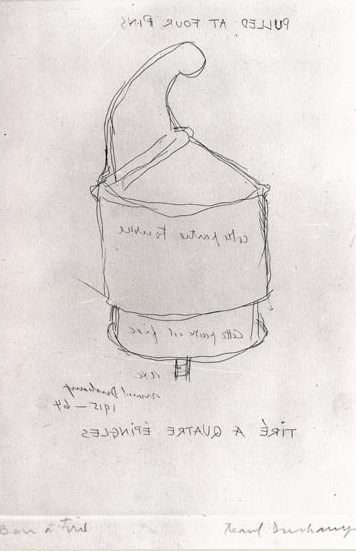 PULLED AT FOUR PINS
cette partie tourne
cette partie est fixe
axe
Marcel Duchamp
1915 – 64
TIRÉ A QUATRE ÉPINGLES
Bon à Tirer Marcel Duchamp